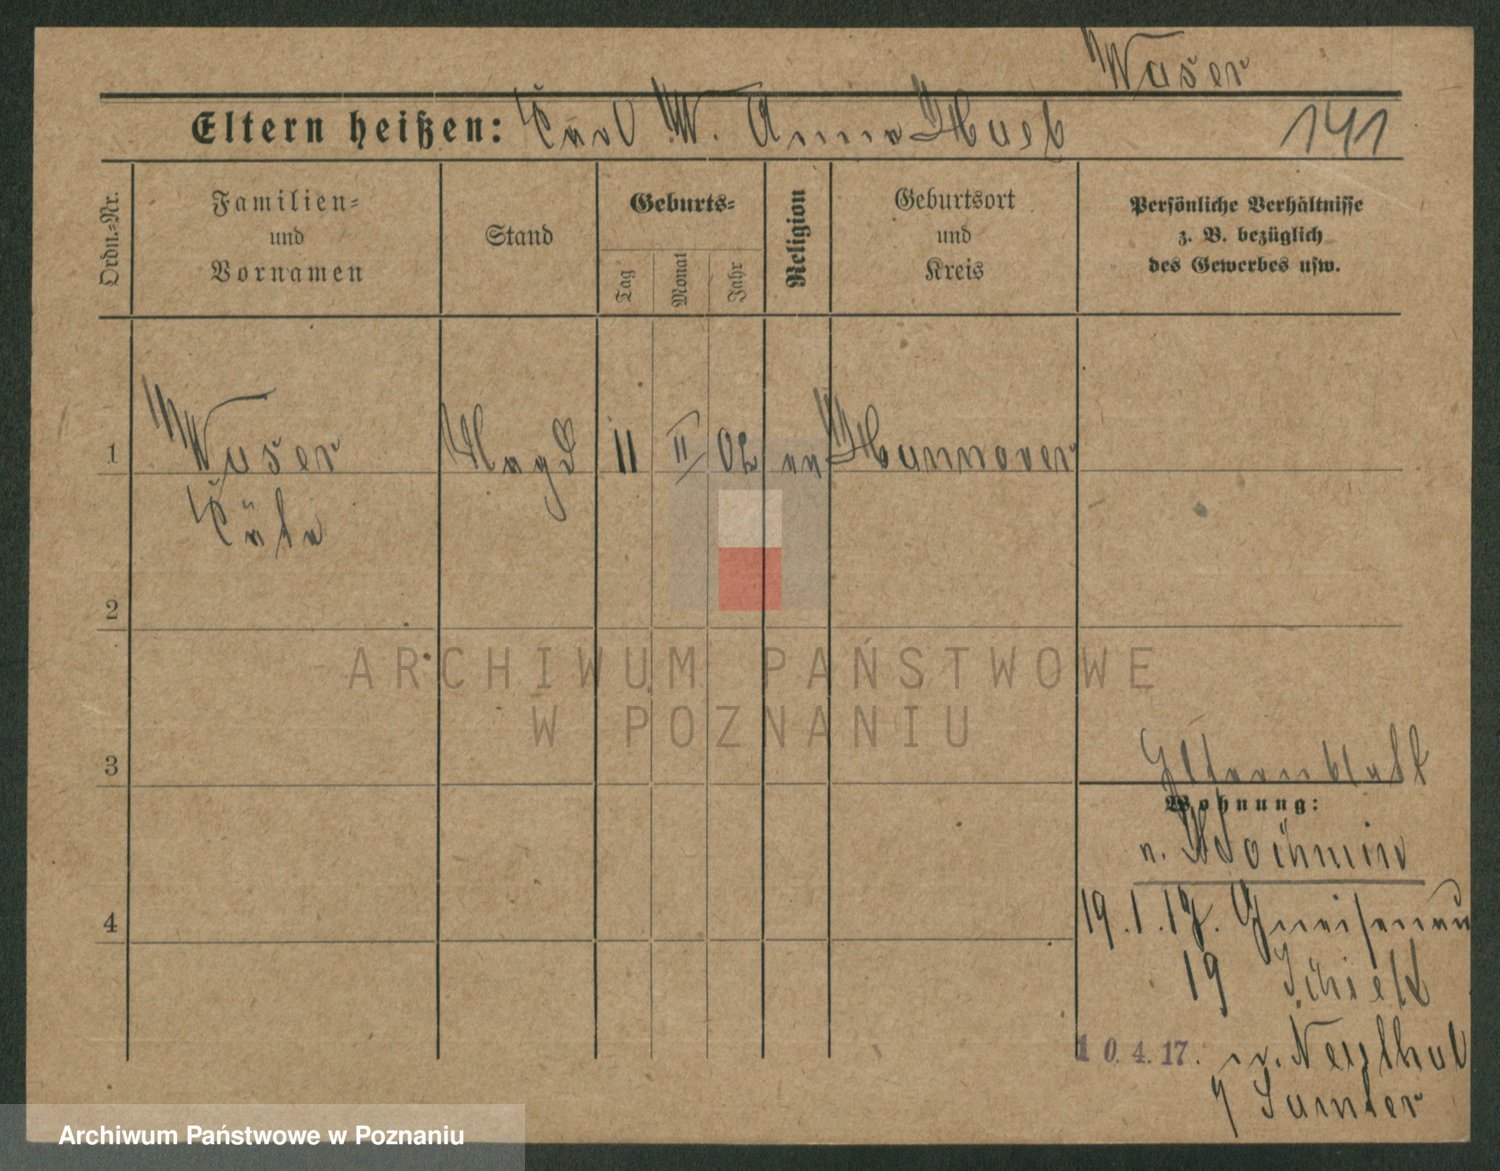 Waser
Eltern heißen: Carl W. Anna 141
Ordn.-Nr.
Familien-
und
Vornamen
Stand
Geburts-
Tag
Monat
Jahr
Religion
Geburtsort
und
Kreis
Persönliche Verhältnisse
z. B. bezüglich
des Gewerbes usw.
1 Waser Magd 11 II 02 Hannover
Käte
2
ARCHIWUM PAŃSTWOWE
W POZNANIU
3
Elternblatt
Wohnung:
n.
4
19.1.17. Gneisenau
19
10.4.17. n.
Samter
Archiwum Państwowe w Poznaniu